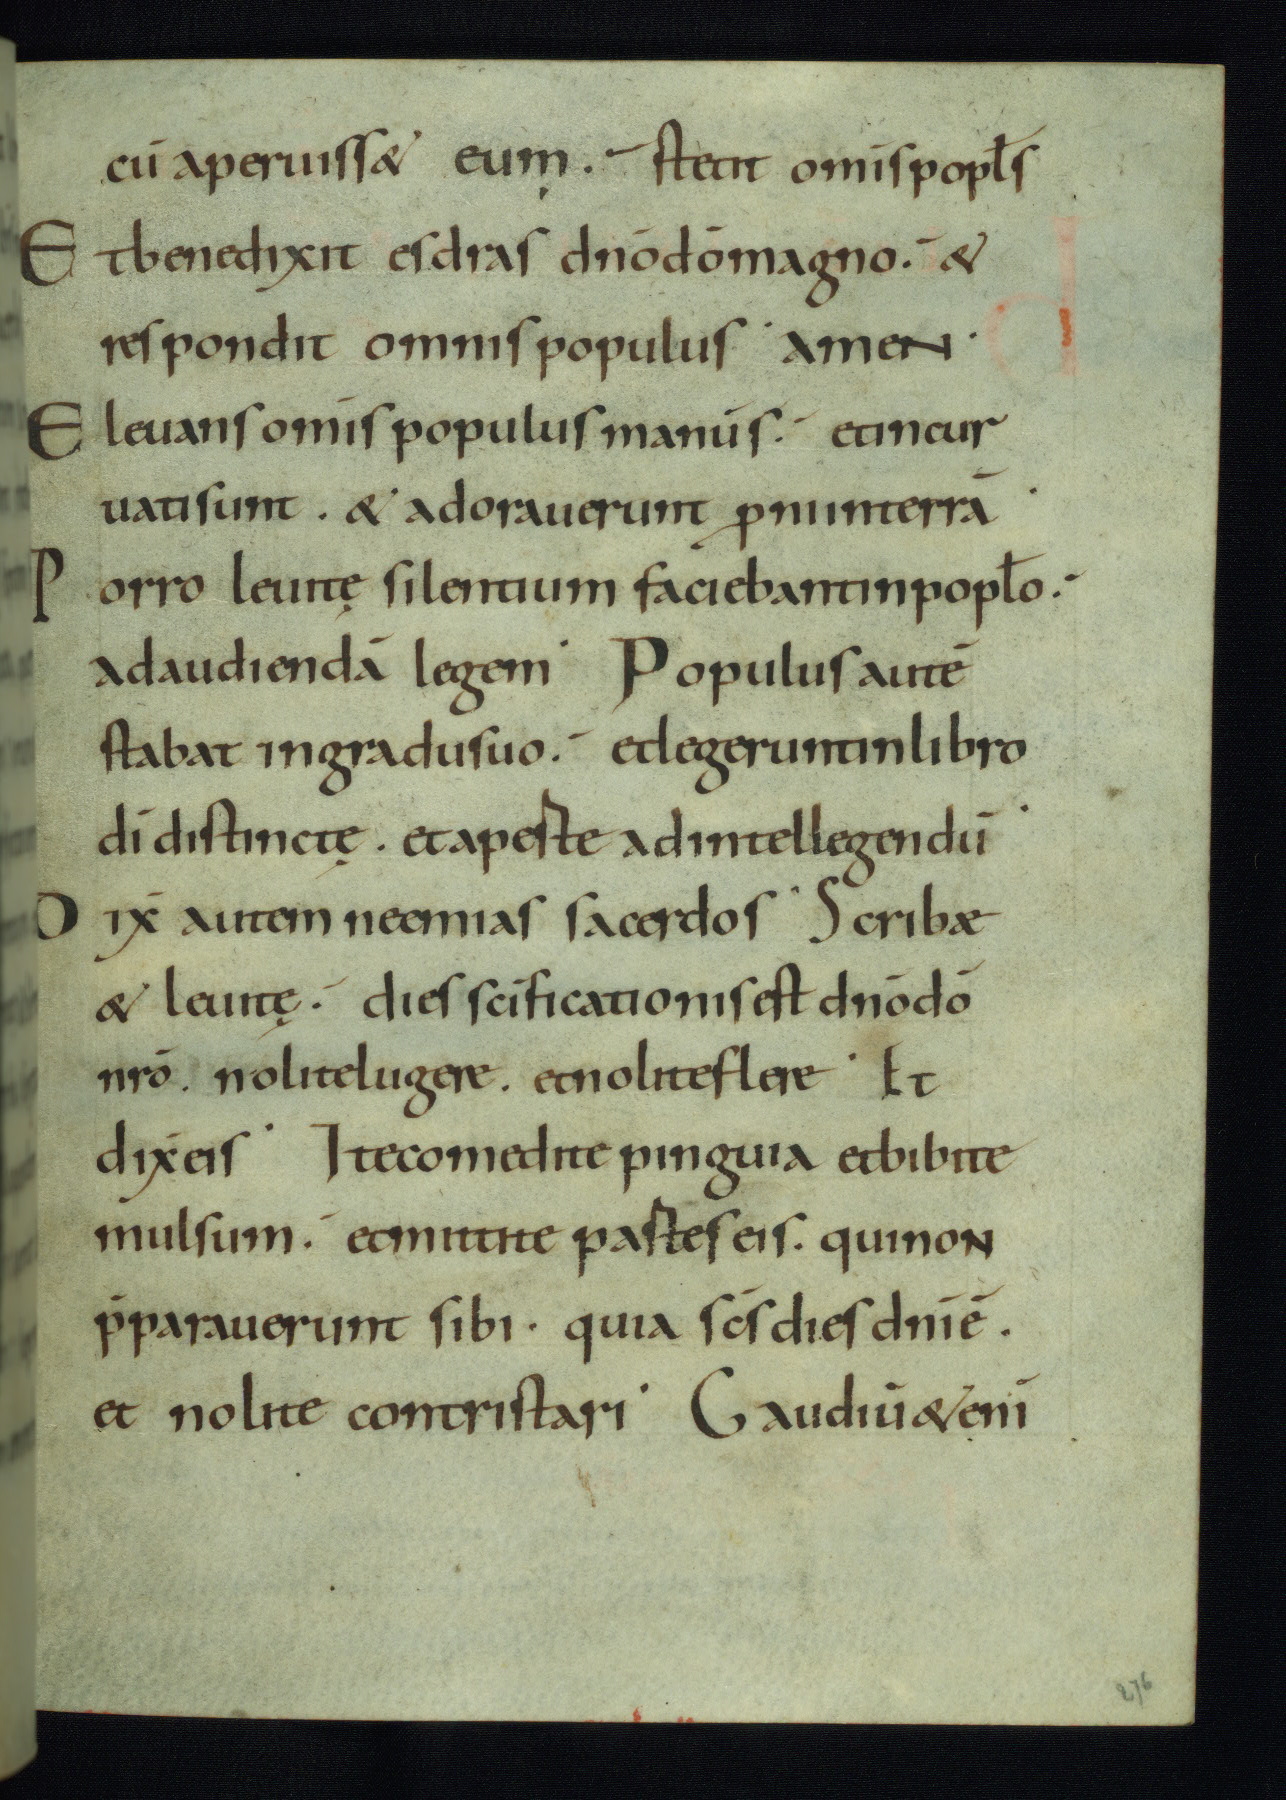 cū aperuiss& eum. stetit omīs popl̄s
Et benedixit esdras dn̄o dō magno. &
respondit omnis populus amen
Eleuans omīs populus manūs. et incur
uati sunt. & adorauerunt ꝓni in terrā
Porro leuitę silentium faciebant in popl̄o.
ad audiendā legem Populus autē
stabat in gradu suo. et legerunt in libro
dī distinctę. et apeſte ad intellegendū
Dix̄ autem neemias sacerdos Scribæ
& leuitę. dies sc̄ificationis est dn̄o dō
nr̄o. nolite lugere. et nolite flere Et
dix̄ eis Ite comedite pinguia et bibite
mulsum. et mittite partes eis. qui non
p̄parauerunt sibi. quia sc̄s dies dn̄i ē.
et nolite contristari Gaudiū &enī
276